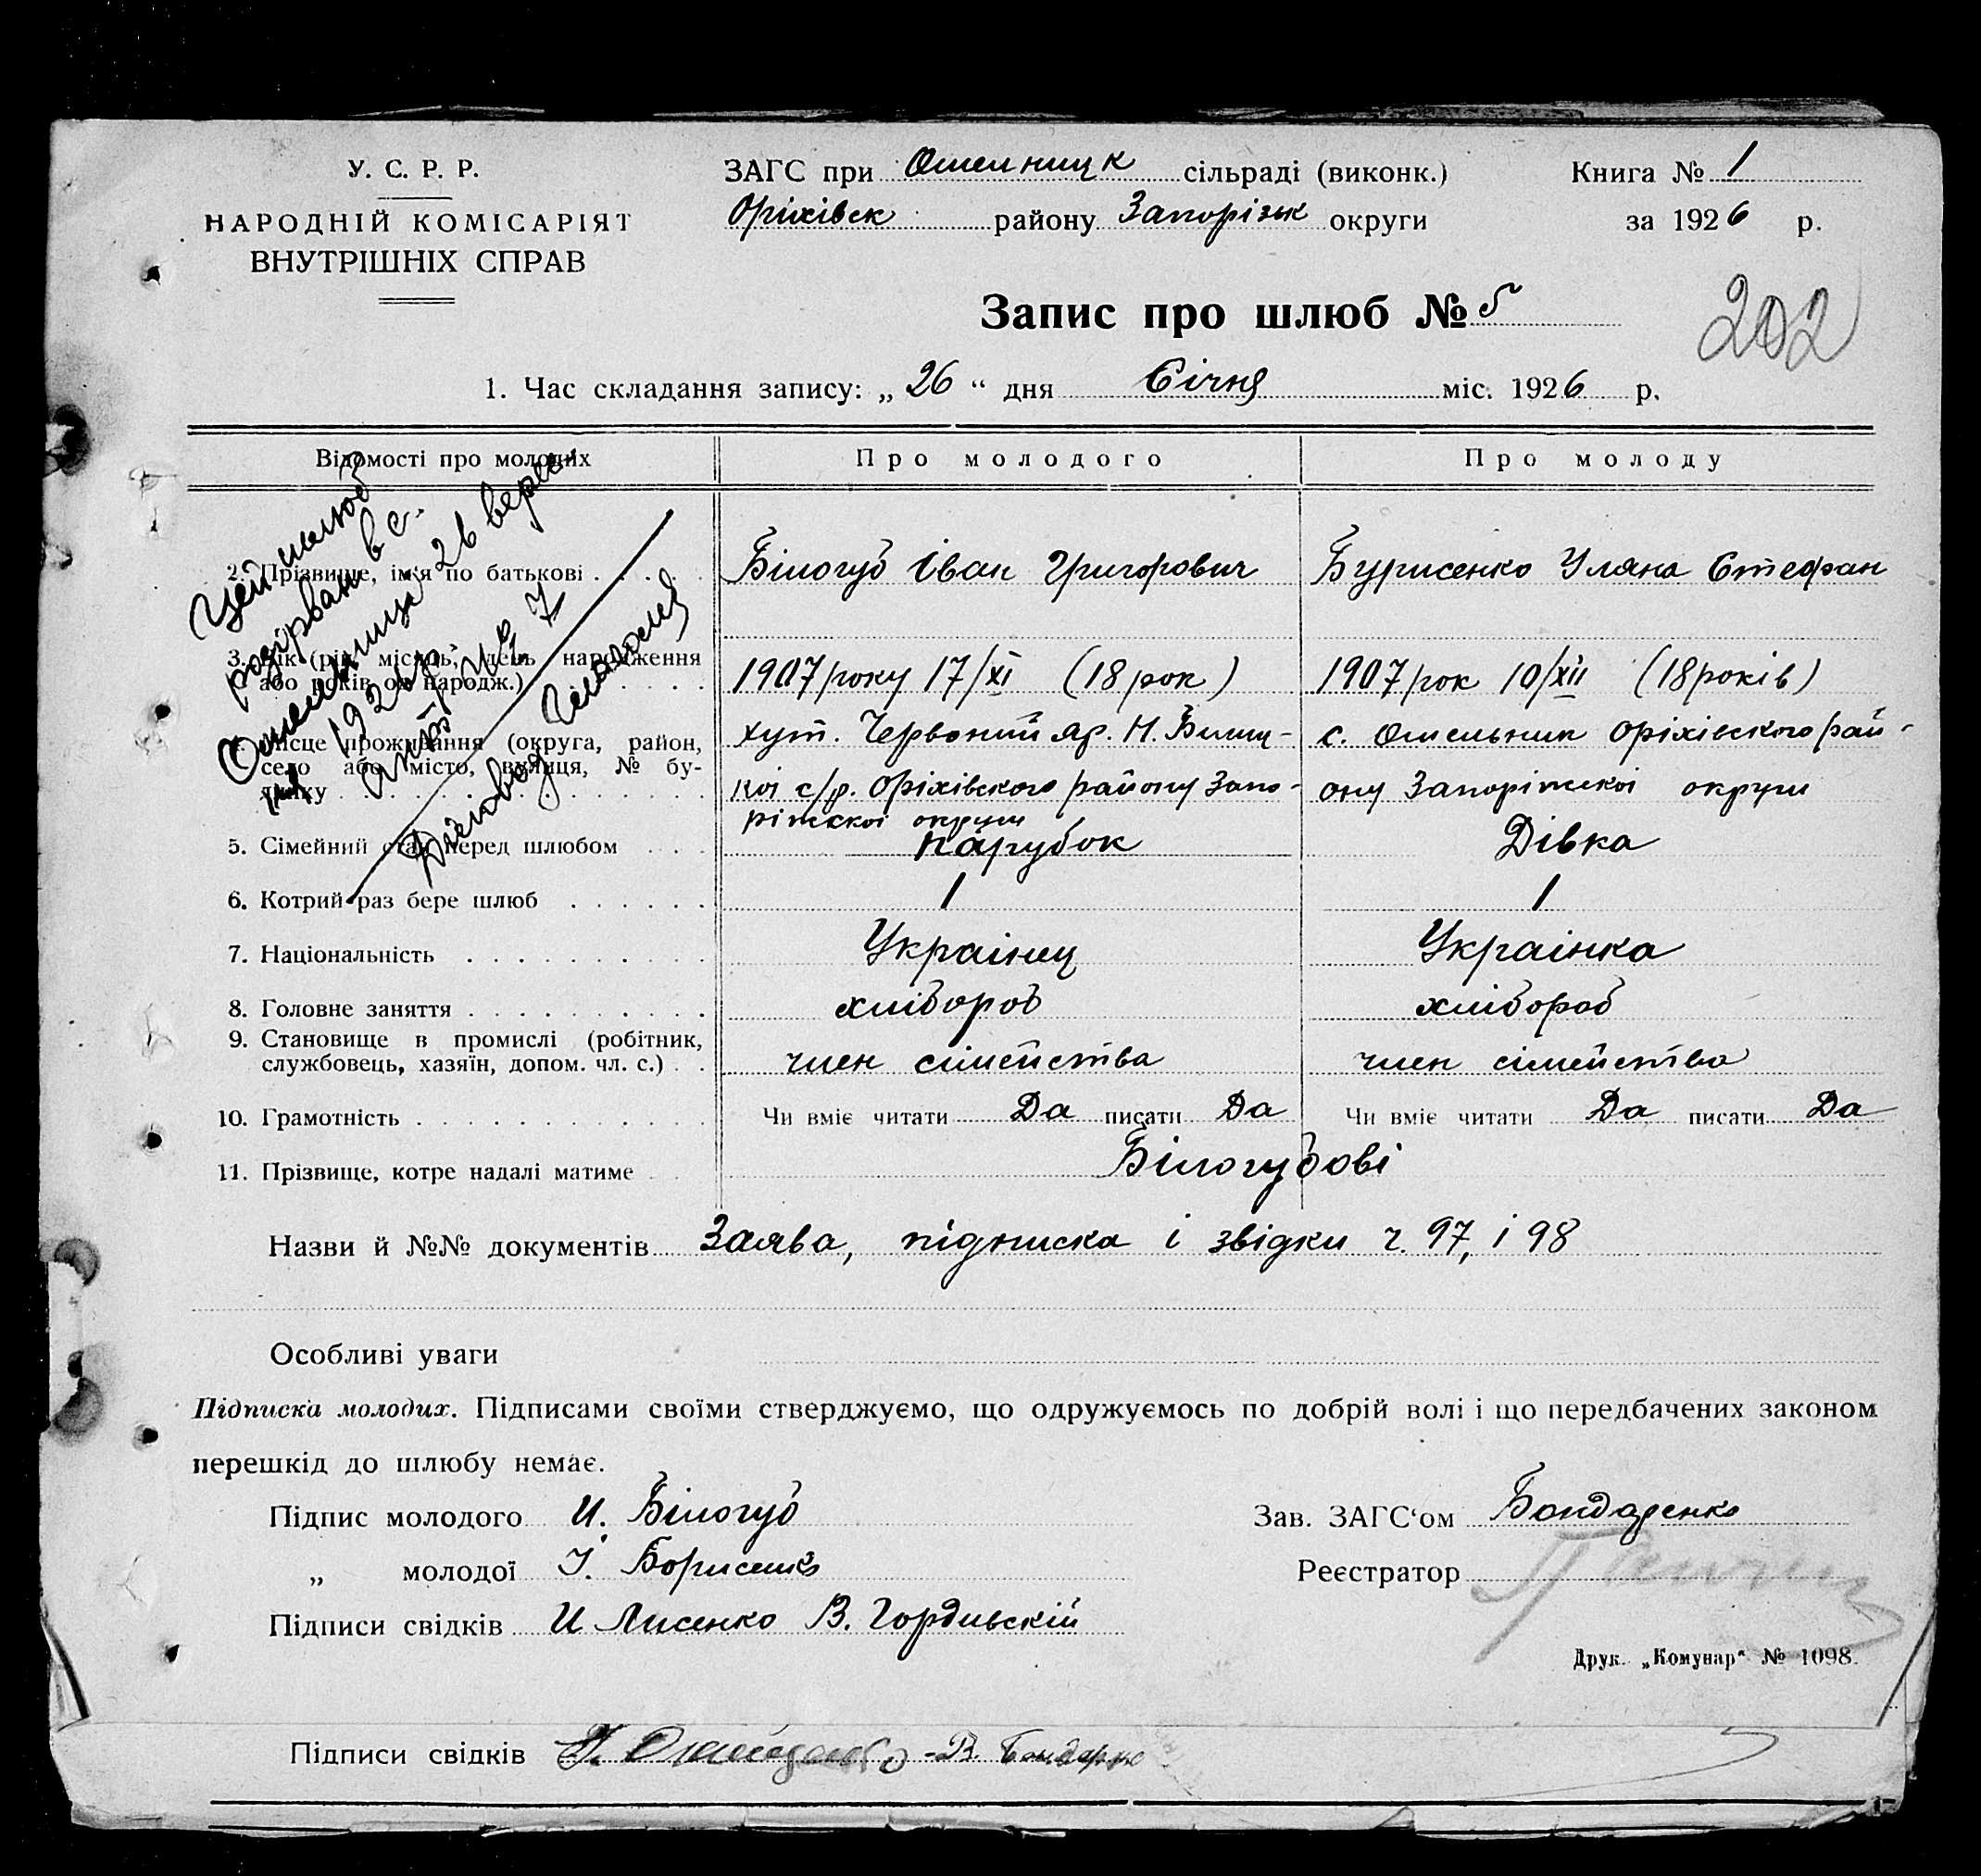 У. С. Р. Р.
НАРОДНІЙ КОМІСАРІЯТ
ВНУТРІШНІХ СПРАВ
ЗАГС при Омельницк сільраді (виконк.)
Оріхівск району Запорізьк округи
Книга № 1
за 1926 р.
Запис про шлюб № 5
202
1. Час складання запису: „26“ дня Січня міс. 1926 р.
Відомості про молодих Про молодого Про молоду
Цей шлюб
розірван в с.
Омельнику 26 верес.
1926 р.
акт № 7
Діловод
2. Прізвище, ім'я по батькові Білогуб Іван Григорович Бурисенко Уляна Стефан
3. Вік (рік, місяць, день народження
або років од народж.) 1907 року 17/XI (18 рок) 1907 рок 10/XII (18 років)
4. Місце проживання (округа, район,
село або місто, вулиця, № бу-
динку
хут. Червоний Яр. Н.
кої с/р. Оріхівского району Запо-
ріжскої округи
с. Омельник Оріхівского рай-
ону Запоріжскої округи
5. Сімейний стан перед шлюбом Парубок Дівка
6. Котрий раз бере шлюб 1 1
7. Національність Украінец Украінка
8. Головне заняття хлібороб хлібороб
9. Становище в промислі (робітник,
службовець, хазяїн, допом. чл. с.) член сімейства член сімейства
10. Грамотність Чи вміє читати Да писати Да Чи вміє читати Да писати Да
11. Прізвище, котре надалі матиме Білогубові
Назви й №№ документів Заява, підписка і звідки ч. 97, і 98
Особливі уваги
Підписка молодих. Підписами своїми стверджуємо, що одружуємось по добрій волі і що передбачених законом
перешкід до шлюбу немає.
Підпис молодого И. Білогуб
„ молодої У. Борисенко
Підписи свідків И Лисенко В. Гордивскій
Зав. ЗАГС'ом Бондаренко
Реєстратор
Друк. „Комунар“ № 1098.
Підписи свідків